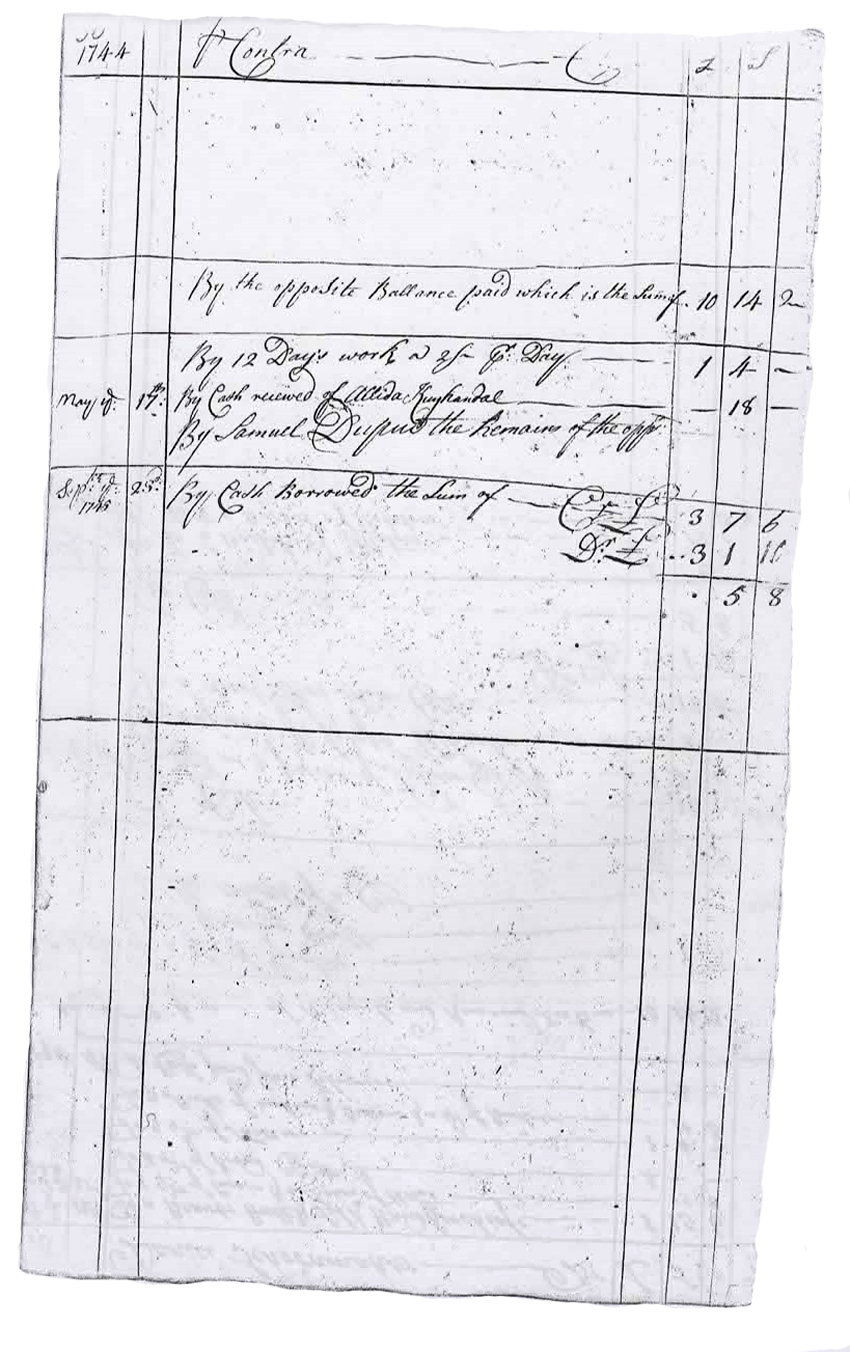 1744 Pr Contra Cr £ S
By the opposite Ballance paid which is the Sum of 10 14 2
By 12 Days work a 2/ Pr Day 1 4 -
May ye 17th By Cash recieved of Allida Kuykandal - 18 -
By Samuel Dupui the Remains of the oppt
Septbr ye 1745 23d By Cash Borrowed the Sum of Cr £ 3 7 6
Dr £ 3 1 10
5 8